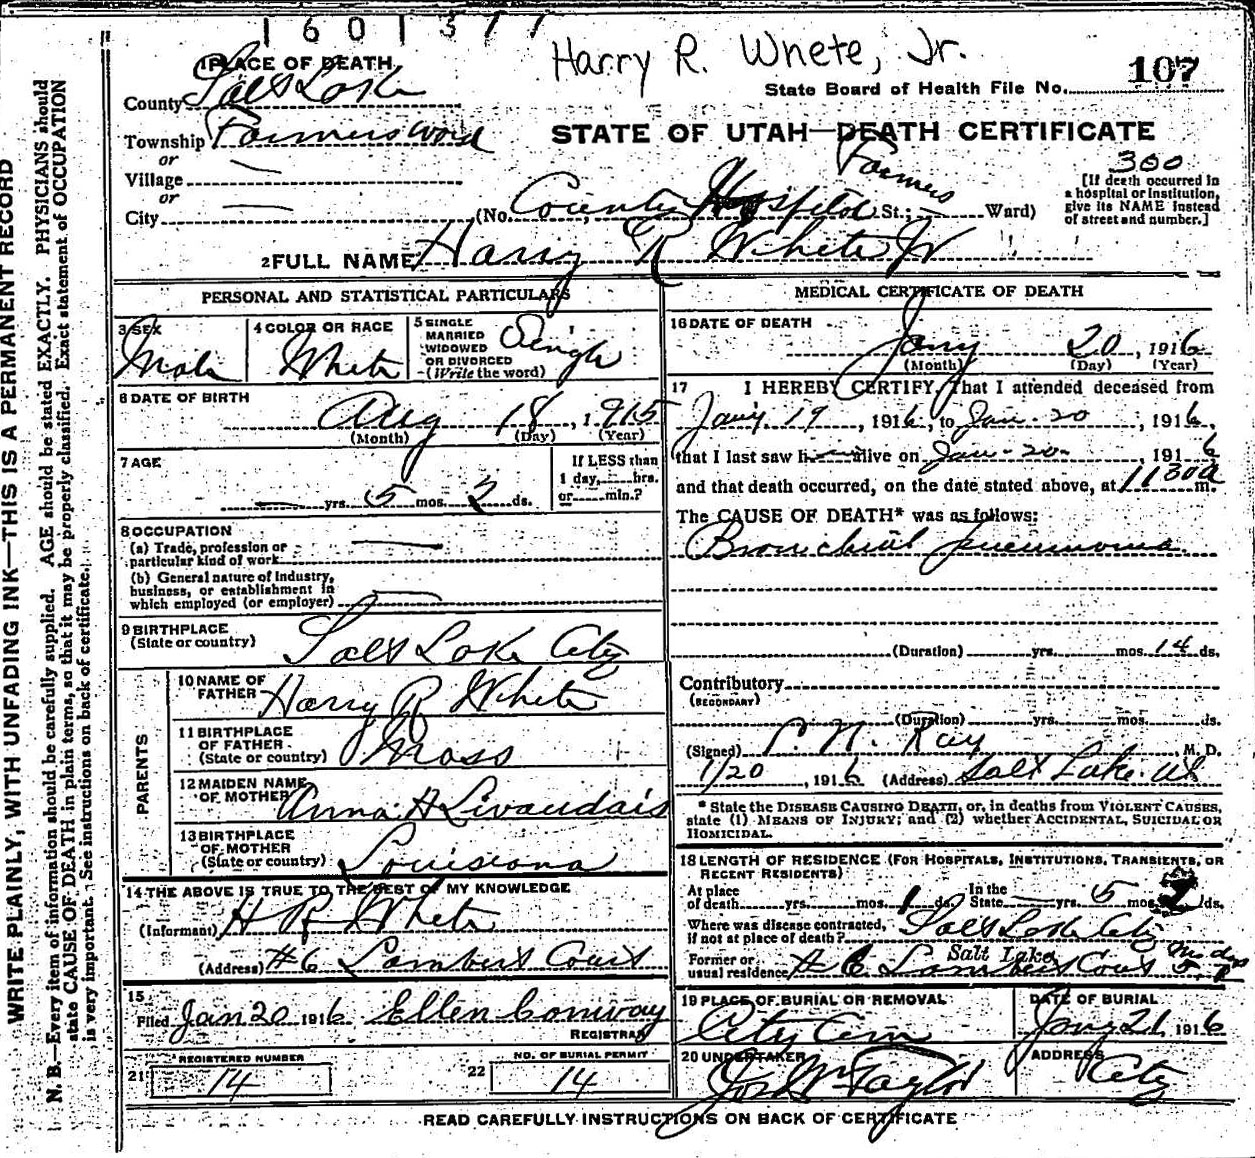 1601377
Harry R. Whete, Jr.
1 PLACE OF DEARTH
State Board of Health File No. 107
County Salt Lake
Township Farmers Ward
STATE OF UTAH—DEATH CERTIFICATE
or
Village
or
300
[If death occurred in
a hospital or institution,
give its NAME instead
of street and number.]
Farmers
City (No. County Hospital St.; Ward)
2 FULL NAME Harry R White Jr
PERSONAL AND STATISTICAL PARTICULARS
3 SEX
Male
4 COLOR OR RACE
White
5 SINGLE
MARRIED
WIDOWED
OR DIVORCED
(Write the word)
Single
6 DATE OF BIRTH
Aug 18, 1915
(Month) (Day) (Year)
7 AGE
yrs. 5 mos. 2 ds.
If LESS than
1 day, hrs.
or min.?
8 OCCUPATION
(a) Trade, profession or
particular kind of work
(b) General nature of industry,
business, or establishment in
which employed (or employer)
9 BIRTHPLACE
(State or country)
Salt Lake City
PARENTS
10 NAME OF
FATHER
Harry R White
11 BIRTHPLACE
OF FATHER
(State or country)
Mass
12 MAIDEN NAME
OF MOTHER
Anna H Livaudais
13 BIRTHPLACE
OF MOTHER
(State or country)
Louisiana
14 THE ABOVE IS TRUE TO THE BEST OF MY KNOWLEDGE
(Informant) H R White
(Address) #6 Lamberts Court
15
Filed Jan 20 1916 Ellen Conway
REGISTRAR
REGISTERED NUMBER
21 14
NO. OF BURIAL PERMIT
22 14
MEDICAL CERTIFICATE OF DEATH
16 DATE OF DEATH
Jany 20, 1916
(Month) (Day) (Year)
17 I HEREBY CERTIFY, That I attended deceased from
Jany. 19, 1916, to Jan. 20, 1916,
that I last saw h alive on Jan. 20, 1916
and that death occurred, on the date stated above, at 1130a m.
The CAUSE OF DEATH* was as follows:
Bronchial pneumonia
(Duration) yrs. mos. 14 ds.
Contributory
(SECONDARY)
(Duration) yrs. mos. ds.
(Signed) N. Ray M. D.
1/20, 1916 (Address) Salt Lake. Ut
* State the DISEASE CAUSING DEATH, or, in deaths from VIOLENT CAUSES,
state (1) MEANS OF INJURY; and (2) whether ACCIDENTAL, SUICIDAL OR
HOMICIDAL.
18 LENGTH OF RESIDENCE (FOR HOSPITALS, INSTITUTIONS, TRANSIENTS, OR
RECENT RESIDENTS)
At place
of death yrs. mos. 1 ds.
In the
State yrs. 5 mos. 2 ds.
Where was disease contracted,
if not at place of death? Salt Lake City
Former or
usual residence # 6 Lamberts Court
Salt Lake
5 mo 2 dys
19 PLACE OF BURIAL OR REMOVAL
City Cem
DATE OF BURIAL
Jany 21, 1916
20 UNDERTAKER
Jos Wm Taylor
ADDRESS
City
READ CAREFULLY INSTRUCTIONS ON BACK OF CERTIFICATE
WRITE PLAINLY, WITH UNFADING INK—THIS IS A PERMANENT RECORD
N. B.—Every item of information should be carefully supplied. AGE should be stated EXACTLY. PHYSICIANS should
state CAUSE OF DEATH in plain terms, so that it may be properly classified. Exact statement of OCCUPATION
is very important. See instructions on back of certificate.